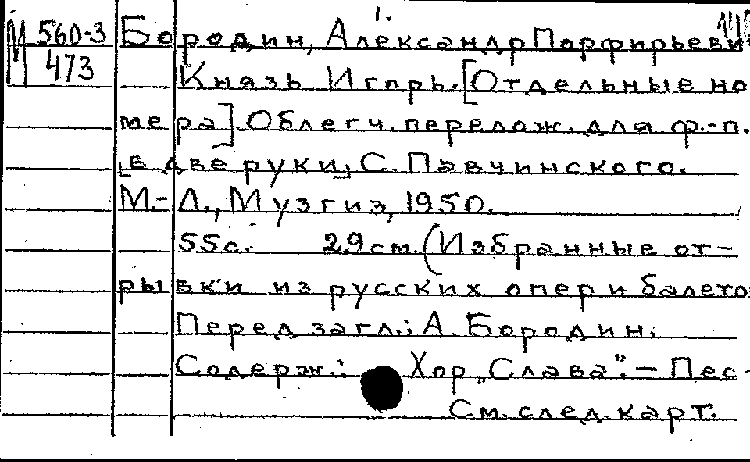 1.
М 560-3
473
Бородин, Александр Порфирьеви
Князь Игорь. [Отдельные но
мера]. Облегч. перелож. для ф.-п.
[в две руки] С. Павчинского.
М.-Л., Музгиз, 1950.
55с. 29см. (Избранные от-
рывки из русских опер и балето
Перед загл.: А. Бородин.
Содерж.: Хор „Слава". – Пес-
См. след. карт.